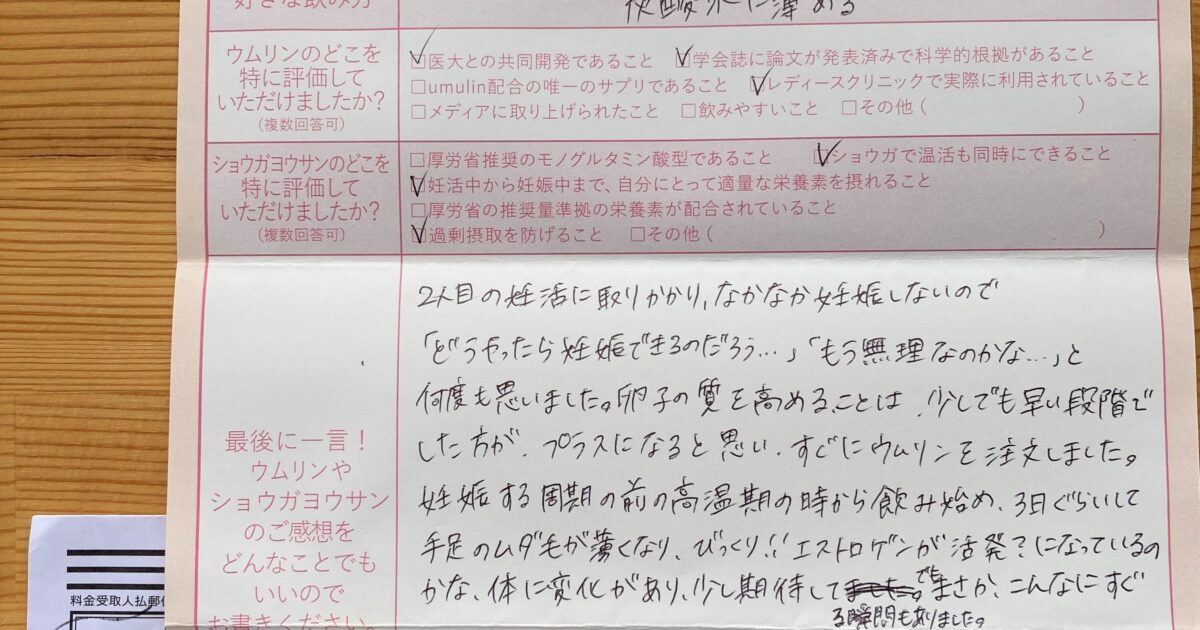 好きな飲み方
炭酸水に薄める
ウムリンのどこを
特に評価して
いただけましたか?
(複数回答可)
☑医大との共同開発であること ☑学会誌に論文が発表済みで科学的根拠があること
□umulin配合の唯一のサプリであること ☑レディースクリニックで実際に利用されていること
□メディアに取り上げられたこと □飲みやすいこと □その他 ( )
ショウガヨウサンのどこを
特に評価して
いただけましたか?
(複数回答可)
□厚労省推奨のモノグルタミン酸型であること ☑ショウガで温活も同時にできること
☑妊活中から妊娠中まで、自分にとって適量な栄養素を摂れること
□厚労省の推奨量準拠の栄養素が配合されていること
☑過剰摂取を防げること □その他 ( )
最後に一言!
ウムリンや
ショウガヨウサン
のご感想を
どんなことでも
いいので
お書きください。
2人目の妊活に取りかかり、なかなか妊娠しないので
「どうやったら妊娠できるのだろう…」「もう無理なのかな…」と
何度も思いました。卵子の質を高めることは、少しでも早い段階で
した方が、プラスになると思い、すぐにウムリンを注文しました。
妊娠する周期の前の高温期の時から飲み始め、3日ぐらいして
手足のムダ毛が薄くなり、びっくり!!エストロゲンが活発?になっているの
かな、体に変化があり、少し期待して
る瞬間もありました。
でも
まさか、こんなにすぐ
料金受取人払郵便